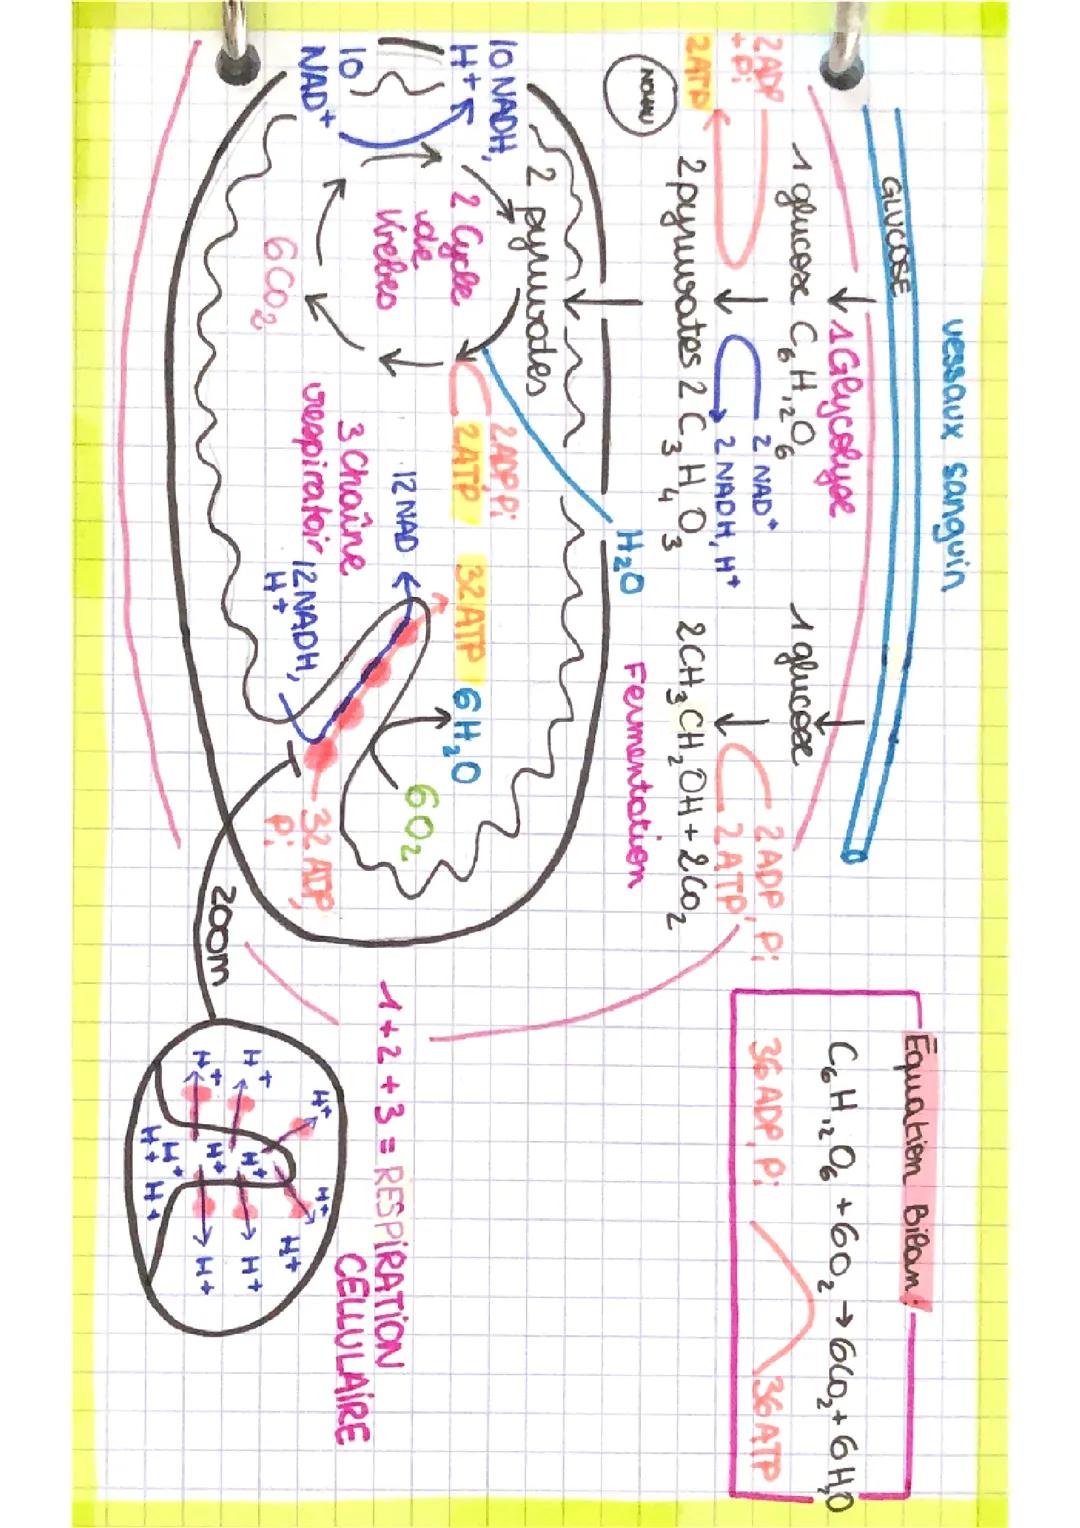 vessaux sanguin
GLUCOSE
1 Glycolyse
1 glucose C6H12O6
2ADP
+ Pi
2ATP
2 NAD+
2 NADH, H+
2 pyruvates 2 C3H4O3
NOYAU
1 glucose
2 ADP, Pi
2 ATP
2CH3CH2OH + 2CO2
Fermentation
H2O
2 pyruvates
10 NADH,
H+
10
NAD+
2 Cycle
de
Krebs
6CO2
2ADP Pi
2ATP
32 ATP
6H2O
6O2
12 NAD
3 Chaîne
respiratoir
12 NADH,
H+
32 ADP,
Pi
zoom
Equation Bilan:
C6H12O6 + 6O2 → 6CO2 + 6H2O
36 ADP, Pi
36 ATP
1 + 2 + 3 = RESPIRATION
CELLULAIRE
H+ H+
H+ H+
H+ H+ H+
H+ H+ H+
H+ H+ H+